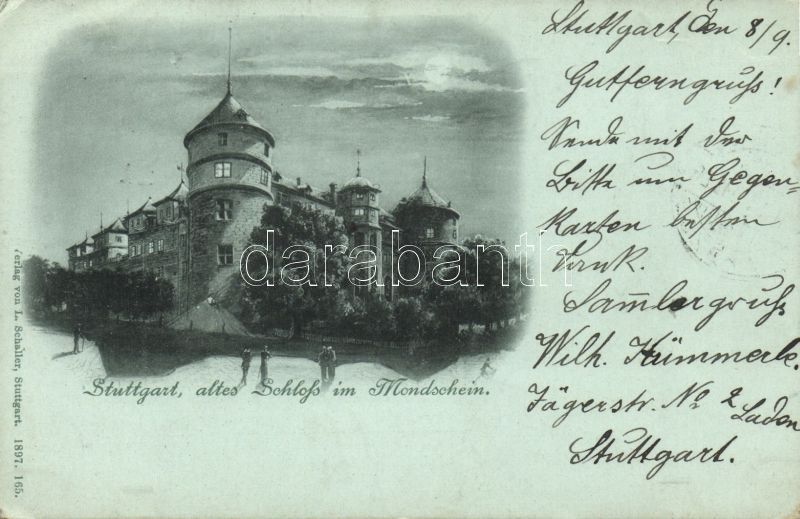 Stuttgart, den 8/9.
Gutferngruß!
Sende mit der
Bitte um Gegen-
Karten besten
Dank.
Sam̅lergruß
Wilh. Kümmerle.
Jägerstr. No 2 Laden
Stuttgart.
Stuttgart, altes Schloß im Mondschein.
Verlag von L. Schaller, Stuttgart. 1897. 165.
darabanth